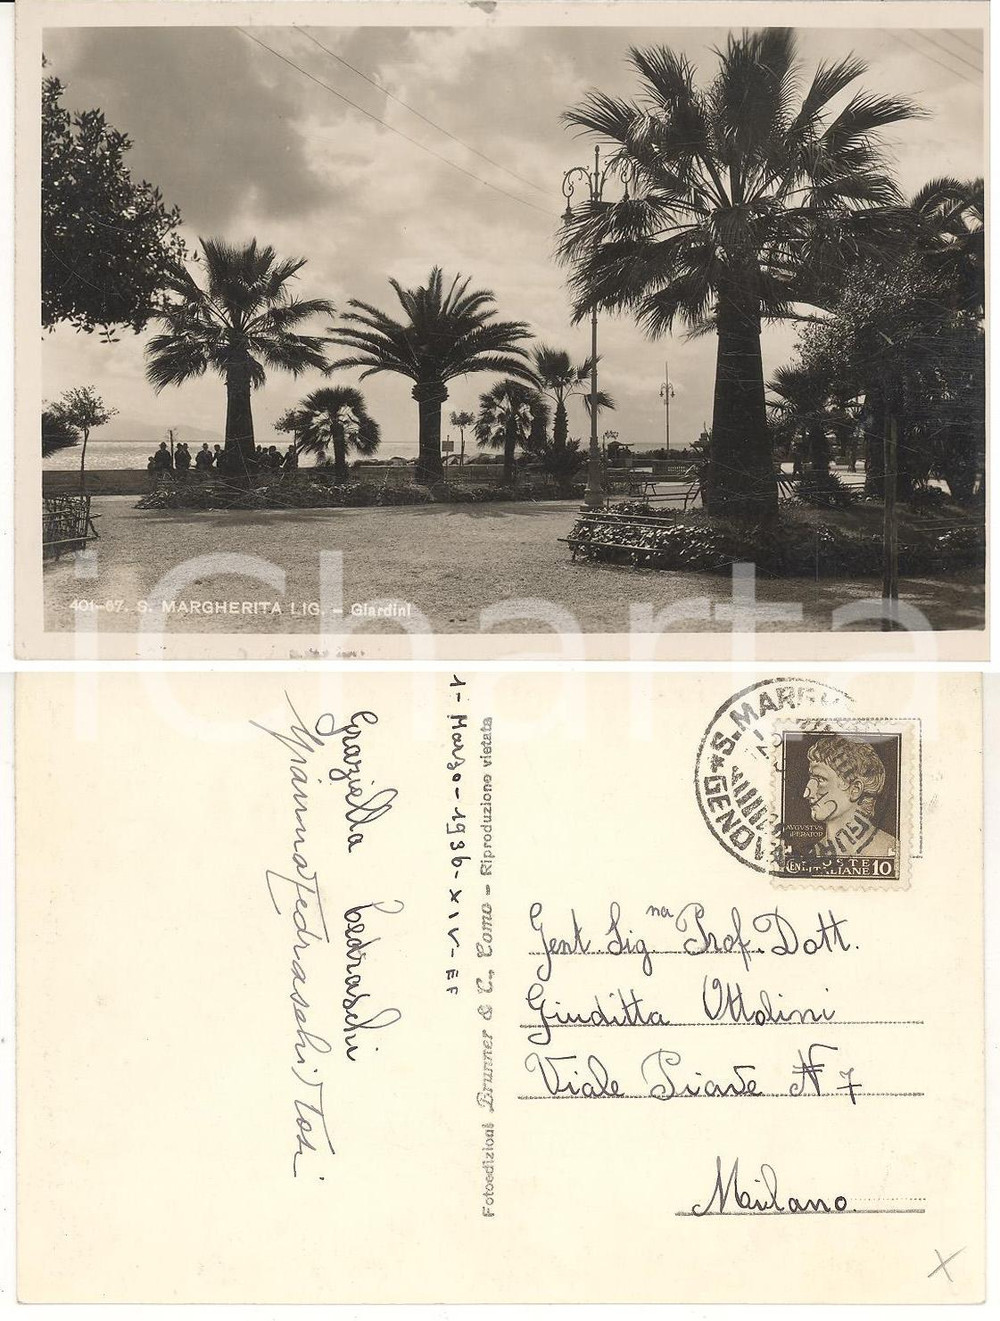 401-67. S. MARGHERITA LIG. - Giardini
iCharta
Graziella Tedraschi
Gianna Tedraschi Tosi
1 - Marzo - 1936 - XIV - EF
Fotoedizioni Brunner & C., Como - Riproduzione vietata
S. MARGHE
LIGURE
GENOVA
AVGVSTVS
IPERATOR
POSTE
CENT. ITALIANE 10
Gent. Sig.na Prof. Dott.
Giuditta Ottolini
Viale Piave N 7
Milano.
X